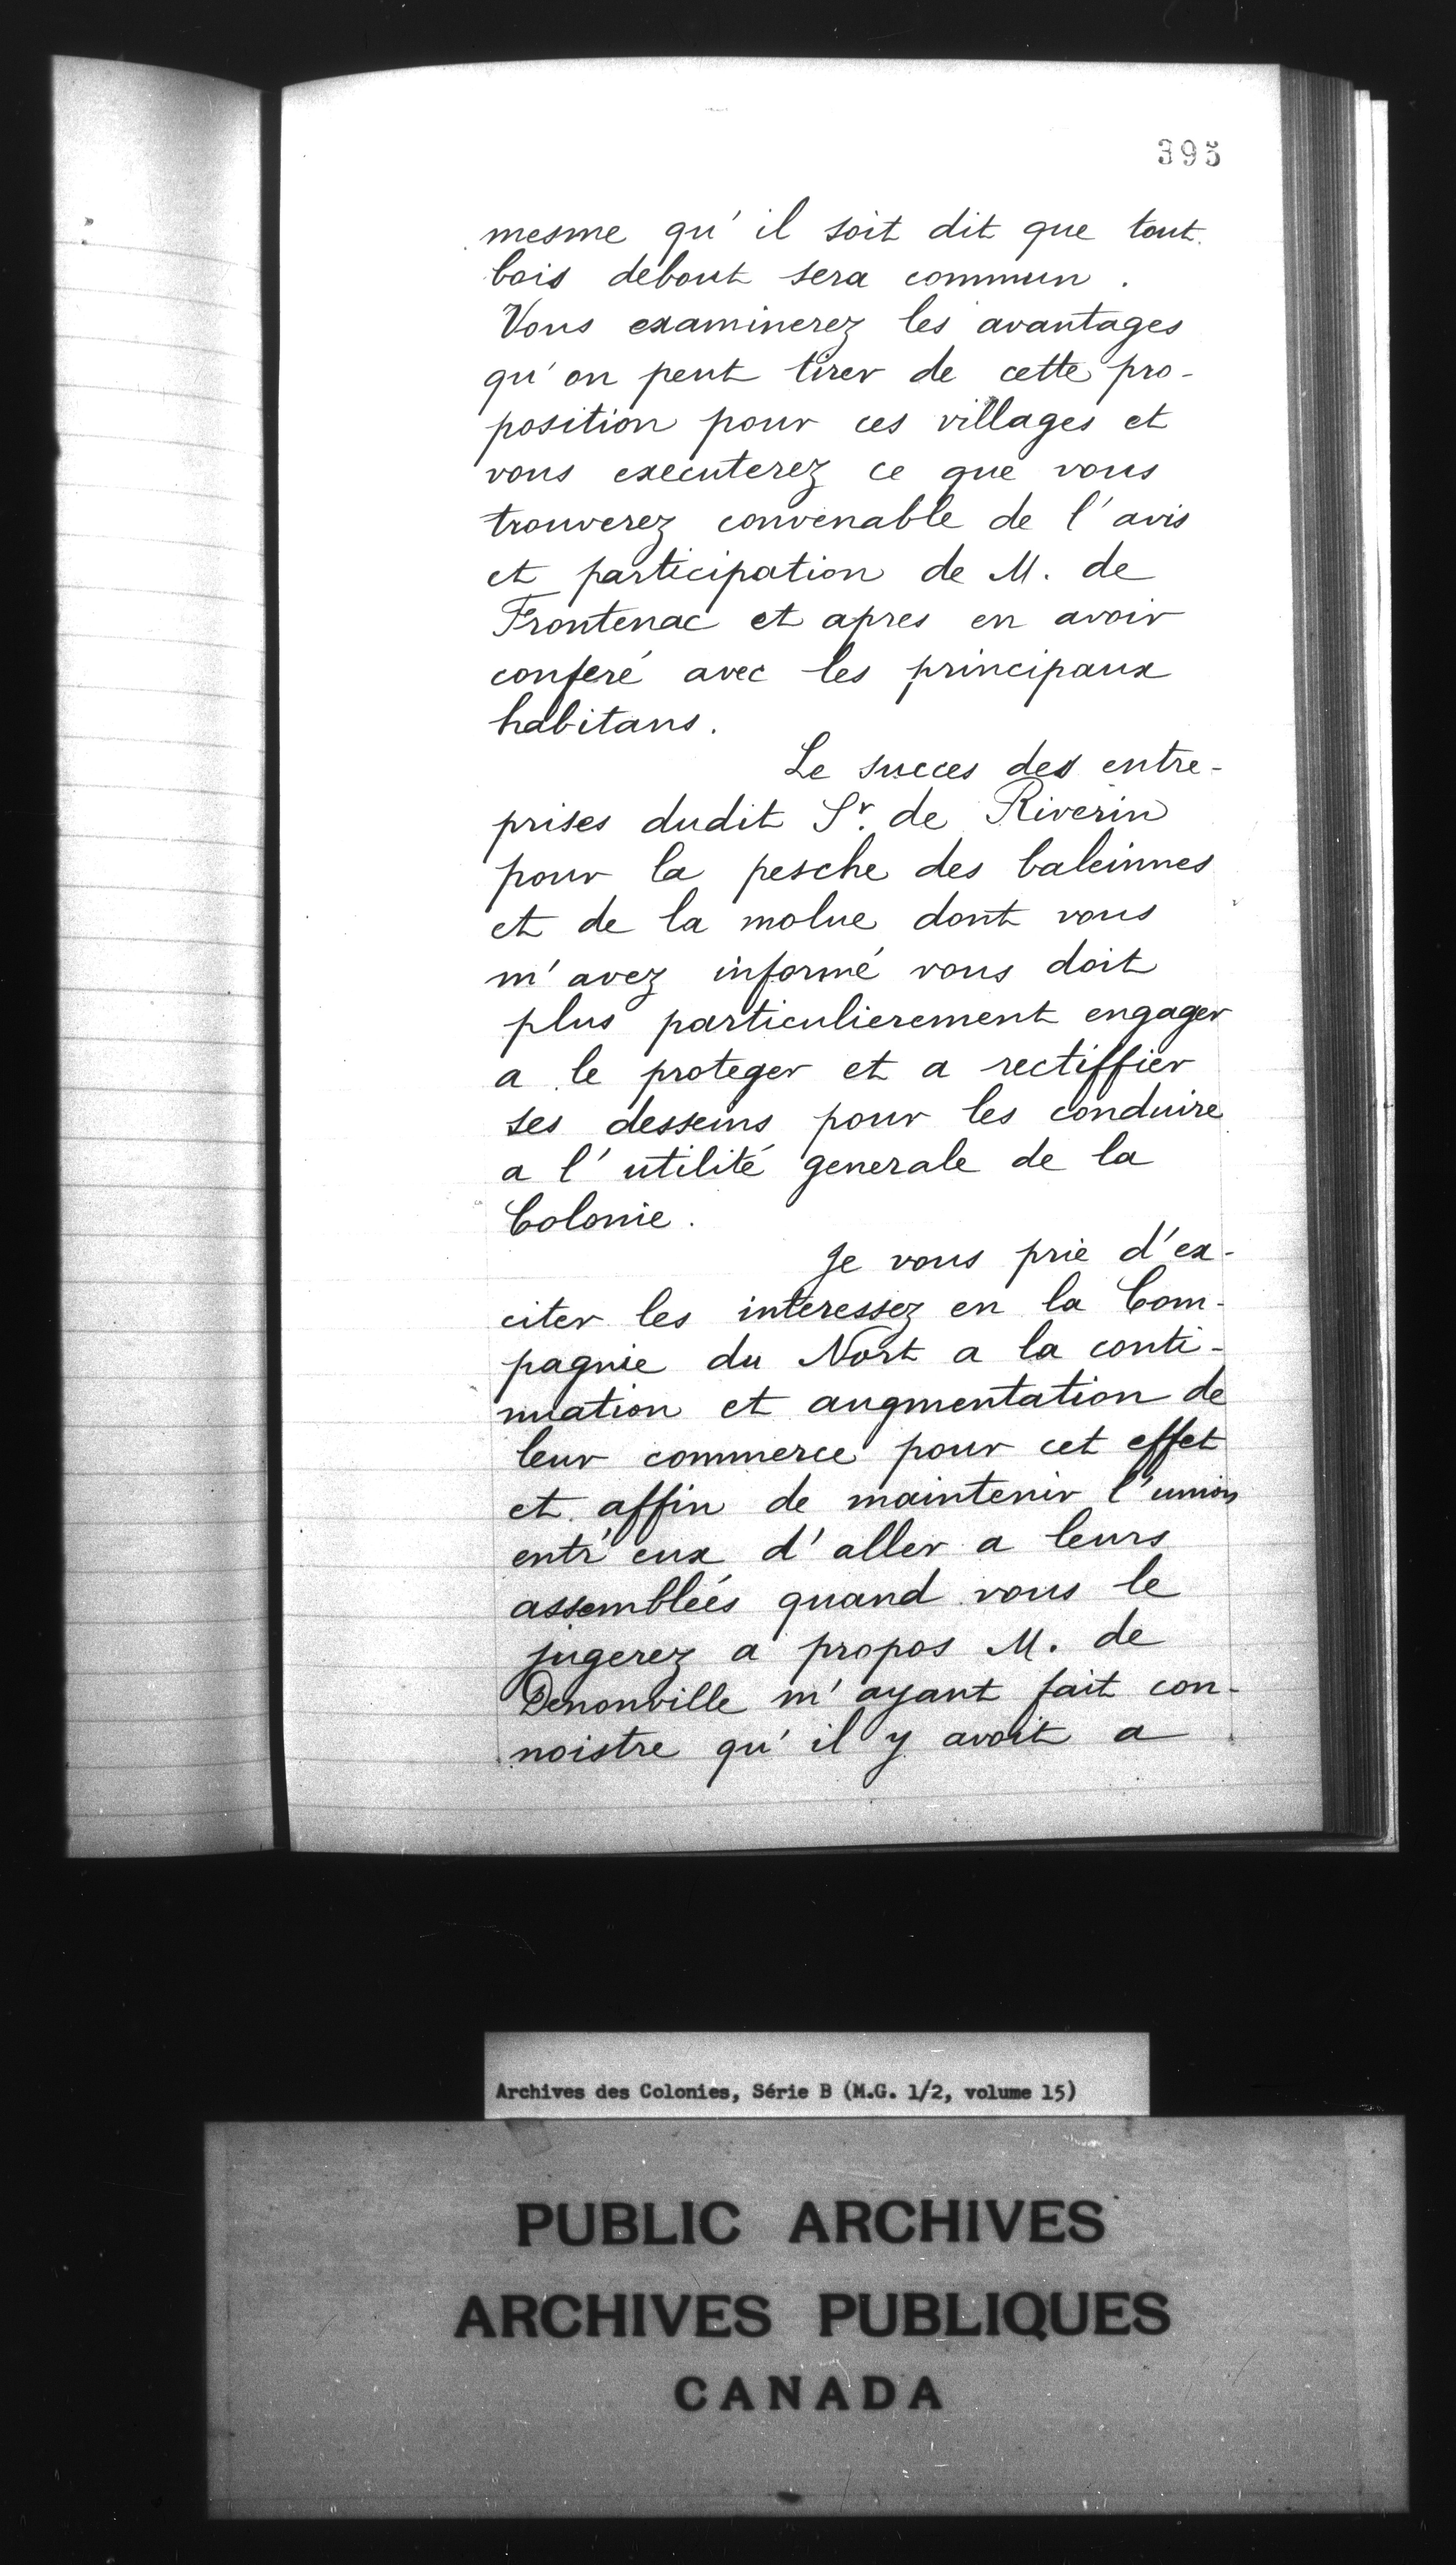 395
mesme qu'il soit dit que tout
bois debout sera commun.
Vous examinerez les avantages
qu'on peut tirer de cette pro-
position pour ces villages et
vous executerez ce que vous
trouverez convenable de l'avis
et participation de M. de
Frontenac et apres en avoir
conferé avec les principaux
habitans.
Le succes des entre-
prises dudit Sr. de Riverin
pour la pesche des baleinnes
et de la molue dont vous
m'avez informé vous doit
plus particulierement engager
a le proteger et a rectiffier
ses desseins pour les conduire
a l'utilité generale de la
Colonie.
Je vous prie d'ex-
citer les interessez en la Com-
pagnie du Nort a la conti-
nuation et augmentation de
leur commerce pour cet effet
et affin de maintenir l'union
entr'eux d'aller a leurs
assemblées quand vous le
jugerez a propos M. de
Denonville m'ayant fait con-
noistre qu'il y avoit a
Archives des Colonies, Série B (M.G. 1/2, volume 15)
PUBLIC ARCHIVES
ARCHIVES PUBLIQUES
CANADA